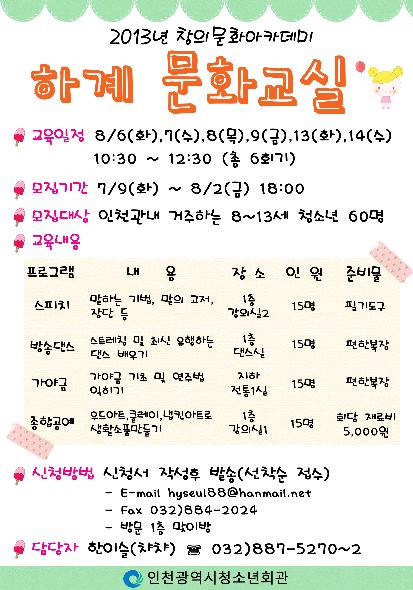 2013년 창의문화아카데미
하계 문화교실
교육일정 8/6(화),7(수),8(목),9(금),13(화),14(수)
10:30 ~ 12:30 (총 6회기)
모집기간 7/9(화) ~ 8/2(금) 18:00
모집대상 인천관내 거주하는 8~13세 청소년 60명
교육내용
프로그램 내 용 장 소 인 원 준비물
스피치 말하는 기법, 말의 고저, 장단 등 1층 강의실2 15명 필기도구
방송댄스 스트레칭 및 최신 유행하는 댄스 배우기 1층 댄스실 15명 편한복장
가야금 가야금 기초 및 연주법 익히기 지하 전통1실 15명 편한복장
종합공예 우드아트,클레이,냅킨아트로 생활소품만들기 1층 강의실1 15명 회당 재료비 5,000원
신청방법 신청서 작성후 발송(선착순 접수)
- E-mail hyseul88@hanmail.net
- Fax 032)884-2024
- 방문 1층 맞이방
담당자 한이슬(챠챠) ☎ 032)887-5270~2
인천광역시청소년회관